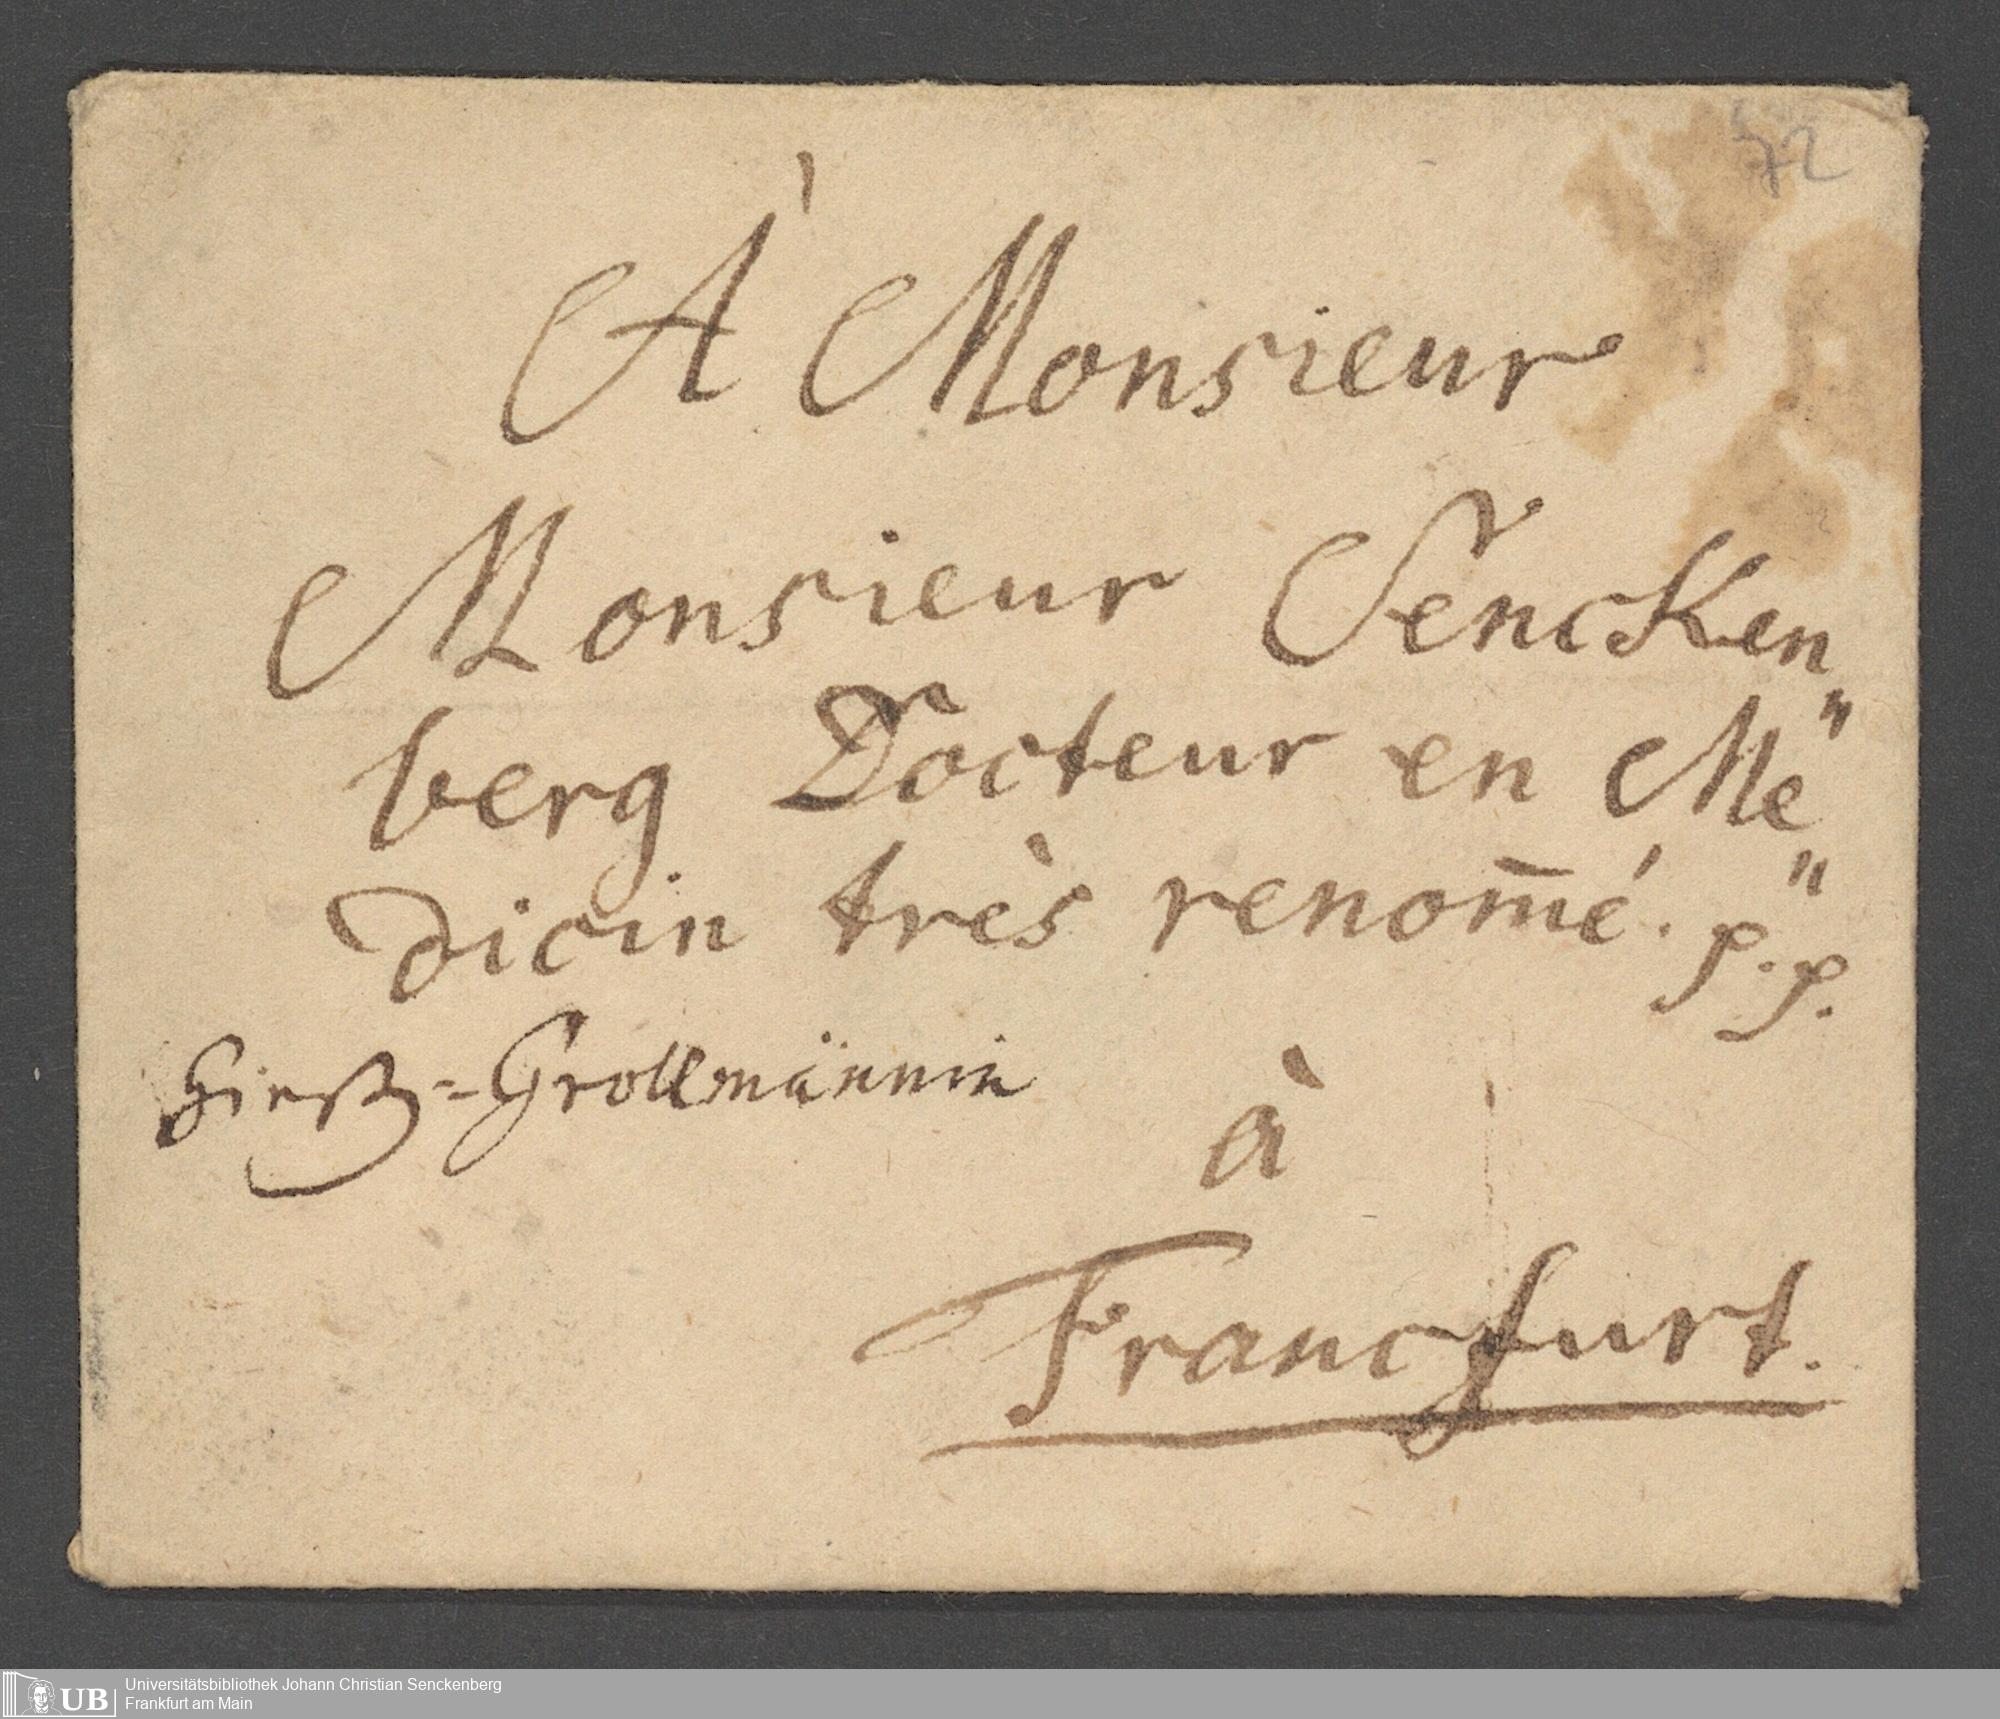 72
À Monsieur
Monsieur Sencken"
berg Docteur en Me"
dicin très renom̄é. p. p.
Grollmännin
à
Francfurt.
Universitätsbibliothek Johann Christian Senckenberg
Frankfurt am Main
UB